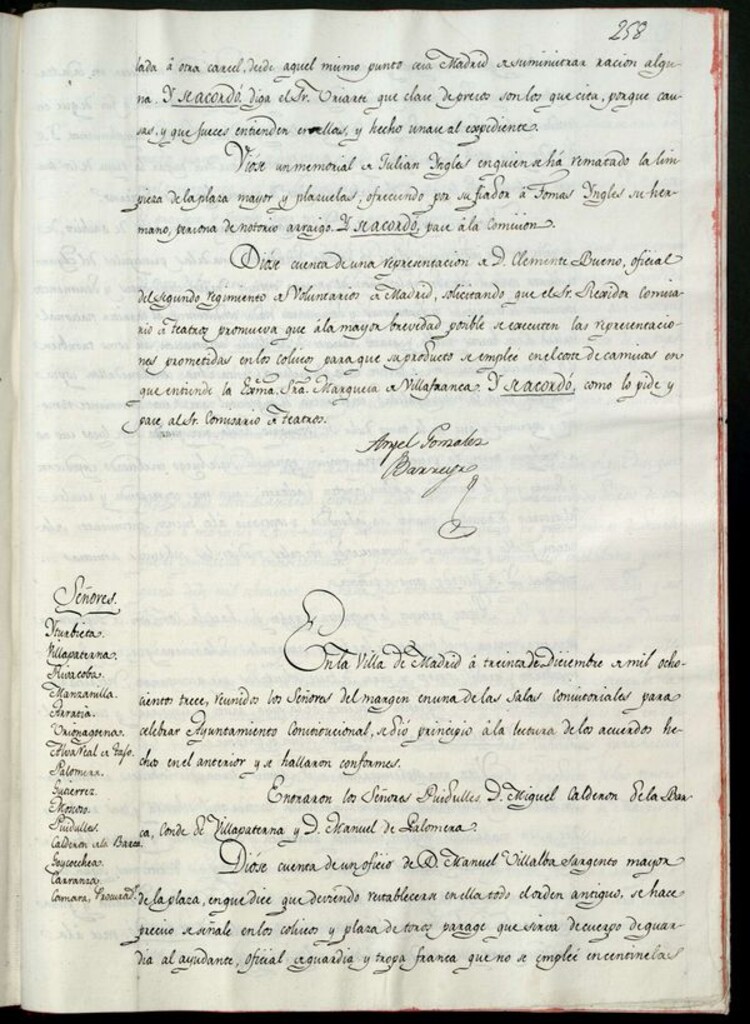 258
lada á otra carcel, desde aquel mismo punto cesa Madrid de suministrar racion algu-
na. Y se acordó diga el Sr. Uriarte que clase de presos son los que cita, porque cau-
sas, y que jueces entienden en ellas, y hecho unase al expediente.
Vióse un memorial de Julian Ingles en quien se há rematado la lim-
pieza de la plaza mayor y plazuelas, ofreciendo por su fiador á Tomas Yngles su her-
mano, persona de notorio arraigo. Y se acordó, pase á la Comision.
Dióse cuenta de una representacion de D. Clemente Bueno, oficial
del segundo regimiento de Voluntarios de Madrid, solicitando que el Sr. Regidor Comisa-
rio de teatros promueva que á la mayor brevedad posible se executen las representacio-
nes prometidas en los coliseos para que su producto se emplee en el coste de camisas en
que entiende la Exma. Sra. Marquesa de Villafranca. Y se acordó, como lo pide y
pase, al Sr. Comisario de teatros.
Angel Gonzalez
Barreyro
Señores.
Yturbieta.
Villapaterna.
Rivacoba.
Manzanilla.
Arratia.
Urionagoena.
Palomera.
Gutierrez.
Moscoso.
Puidulles.
Calderon de la Barca.
Goycoechea.
Carranza.
Camara, Procurador.
En la Villa de Madrid á treinta de Diciembre de mil ocho-
cientos trece, reunidos los Señores del margen en una de las salas consistoriales para
celebrar Ayuntamiento Constitucional, se dió principio á la lectura de los acuerdos he-
chos en el anterior y se hallaron conformes.
Entraron los Señores Puidulles, D. Miguel Calderon de la Bar-
ca, Conde de Villapaterna y D. Manuel de Palomera.
Dióse cuenta de un oficio de D. Manuel Villalba Sargento mayor
de la plaza, en que dice que deviendo restablecerse en ella todo el orden antiguo, se hace
preciso se señale en los coliseos y plaza de toros parage que sirva de cuerpo de guar-
dia al ayudante, oficial de guardia y tropa franca que no se emplée en centinelas